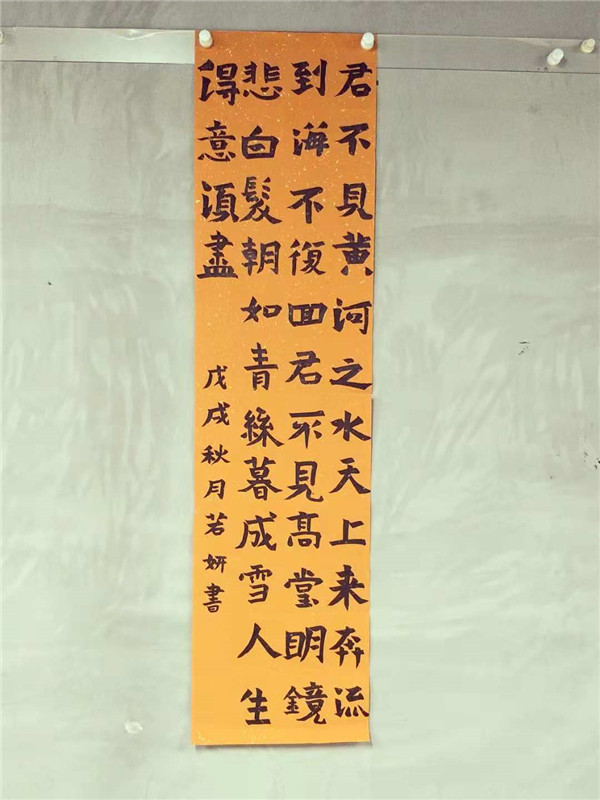 君不見黄河之水天上来奔流
到海不復回君不見髙堂眀鏡
悲白髮朝如青絲暮成雪人生
得意須盡
戊戌秋月若妍書